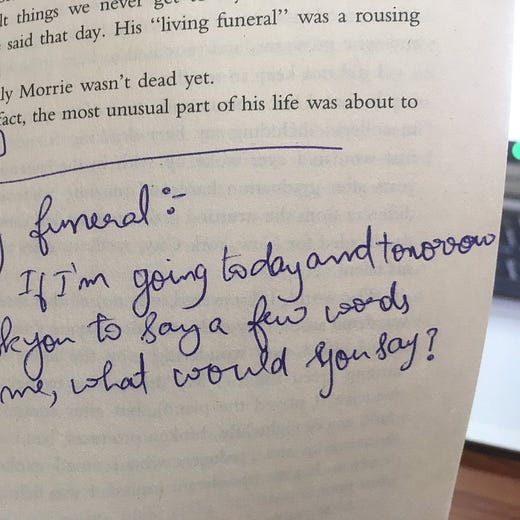 things we never get
said that day. His “living funeral” was a rousing
ly Morrie wasn’t dead yet.
fact, the most unusual part of his life was about to
funeral :-
If I'm going today and tomorrow
you to say a few words
me, what would you say?